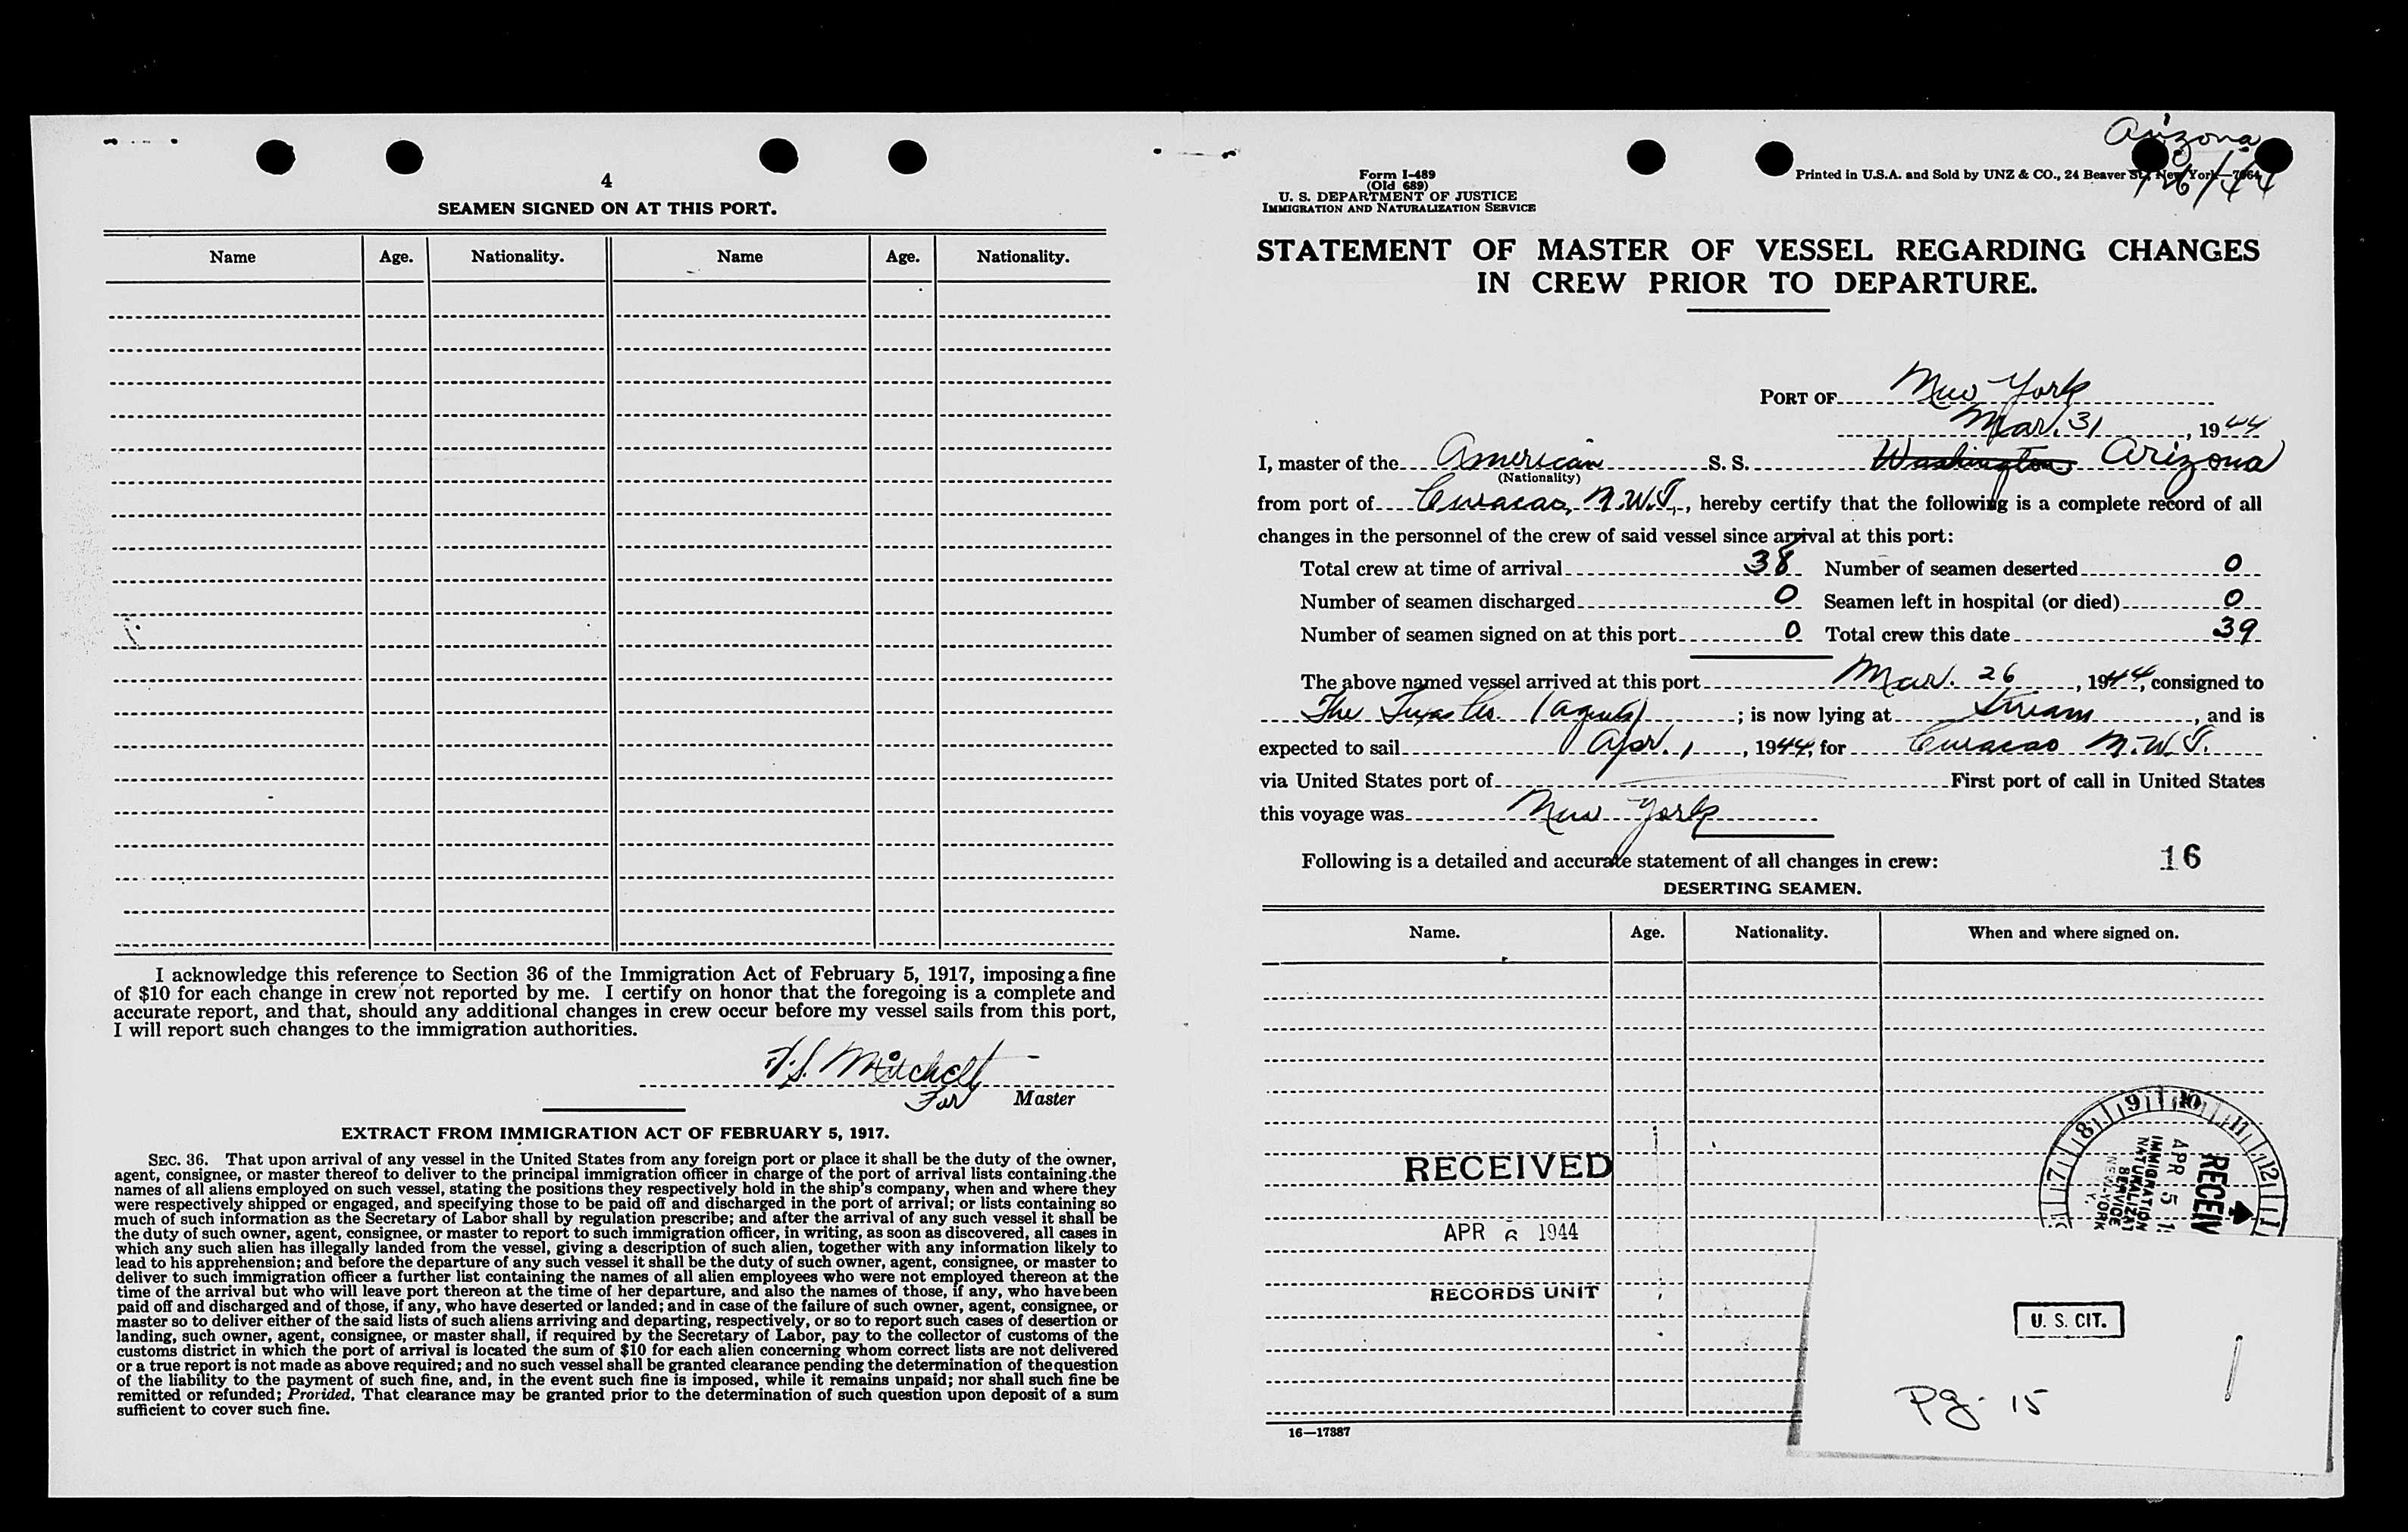 4
SEAMEN SIGNED ON AT THIS PORT.
Name Age. Nationality. Name Age. Nationality.
I acknowledge this reference to Section 36 of the Immigration Act of February 5, 1917, imposing a fine
of $10 for each change in crew not reported by me. I certify on honor that the foregoing is a complete and
accurate report, and that, should any additional changes in crew occur before my vessel sails from this port,
I will report such changes to the immigration authorities.
Mitchell
For Master
EXTRACT FROM IMMIGRATION ACT OF FEBRUARY 5, 1917.
SEC. 36. That upon arrival of any vessel in the United States from any foreign port or place it shall be the duty of the owner,
agent, consignee, or master thereof to deliver to the principal immigration officer in charge of the port of arrival lists containing the
names of all aliens employed on such vessel, stating the positions they respectively hold in the ship's company, when and where they
were respectively shipped or engaged, and specifying those to be paid off and discharged in the port of arrival; or lists containing so
much of such information as the Secretary of Labor shall by regulation prescribe; and after the arrival of any such vessel it shall be
the duty of such owner, agent, consignee, or master to report to such immigration officer, in writing, as soon as discovered, all cases in
which any such alien has illegally landed from the vessel, giving a description of such alien, together with any information likely to
lead to his apprehension; and before the departure of any such vessel it shall be the duty of such owner, agent, consignee, or master to
deliver to such immigration officer a further list containing the names of all alien employees who were not employed thereon at the
time of the arrival but who will leave port thereon at the time of her departure, and also the names of those, if any, who have been
paid off and discharged and of those, if any, who have deserted or landed; and in case of the failure of such owner, agent, consignee, or
master so to deliver either of the said lists of such aliens arriving and departing, respectively, or so to report such cases of desertion or
landing, such owner, agent, consignee, or master shall, if required by the Secretary of Labor, pay to the collector of customs of the
customs district in which the port of arrival is located the sum of $10 for each alien concerning whom correct lists are not delivered
or a true report is not made as above required; and no such vessel shall be granted clearance pending the determination of the question
of the liability to the payment of such fine, and, in the event such fine is imposed, while it remains unpaid; nor shall such fine be
remitted or refunded; Provided, That clearance may be granted prior to the determination of such question upon deposit of a sum
sufficient to cover such fine.
Arizona
Form I-489
(Old 689)
U. S. DEPARTMENT OF JUSTICE
IMMIGRATION AND NATURALIZATION SERVICE
Printed in U.S.A. and Sold by UNZ & CO., 24 Beaver St., New York—7664
STATEMENT OF MASTER OF VESSEL REGARDING CHANGES
IN CREW PRIOR TO DEPARTURE.
PORT OF New York
Mar. 31, 1944
I, master of the American S. S. Washington Arizona
(Nationality)
from port of Curacao, N.W.I., hereby certify that the following is a complete record of all
changes in the personnel of the crew of said vessel since arrival at this port:
Total crew at time of arrival 38 Number of seamen deserted 0
Number of seamen discharged 0 Seamen left in hospital (or died) 0
Number of seamen signed on at this port 0 Total crew this date 39
The above named vessel arrived at this port Mar. 26, 1944, consigned to
The Texas Co. (agents); is now lying at Stream, and is
expected to sail Apr. 1, 1944, for Curacao N.W.I.
via United States port of First port of call in United States
this voyage was New York
Following is a detailed and accurate statement of all changes in crew: 16
DESERTING SEAMEN.
Name. Age. Nationality. When and where signed on.
RECEIVED
APR 6 1944
RECORDS UNIT
7 8 9 10 11 12 1
RECEIV
APR 5
IMMIGRATION
NATURALIZAT
SERVICE
NEW YORK
U. S. CIT.
pg. 15
16—17387